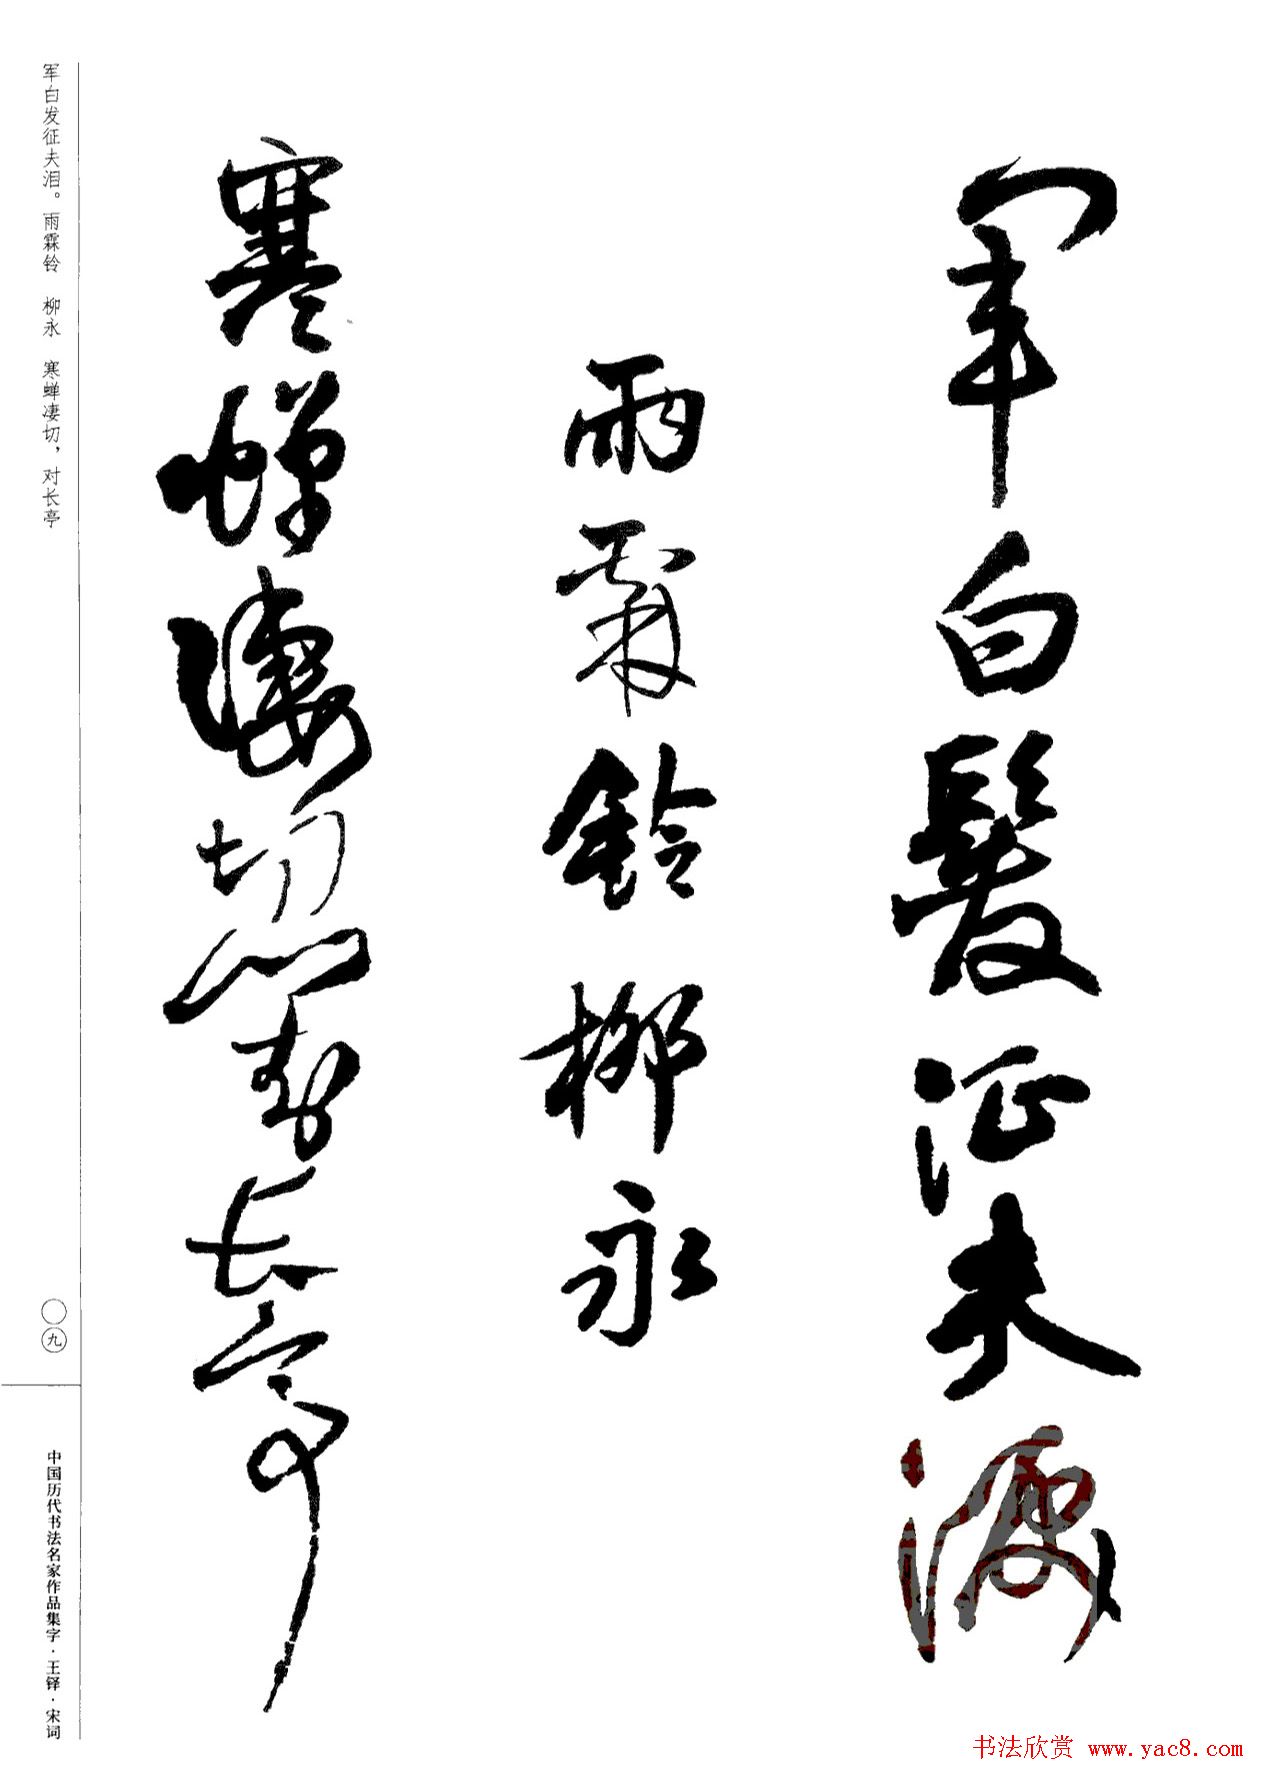 軍白髮征夫淚
雨霖鈴 柳永
寒蟬凄切對長亭
军白发征夫泪。雨霖铃 柳永 寒蝉凄切，对长亭
〇九
中国历代书法名家作品集字·王铎·宋词
书法欣赏 www.yac8.com